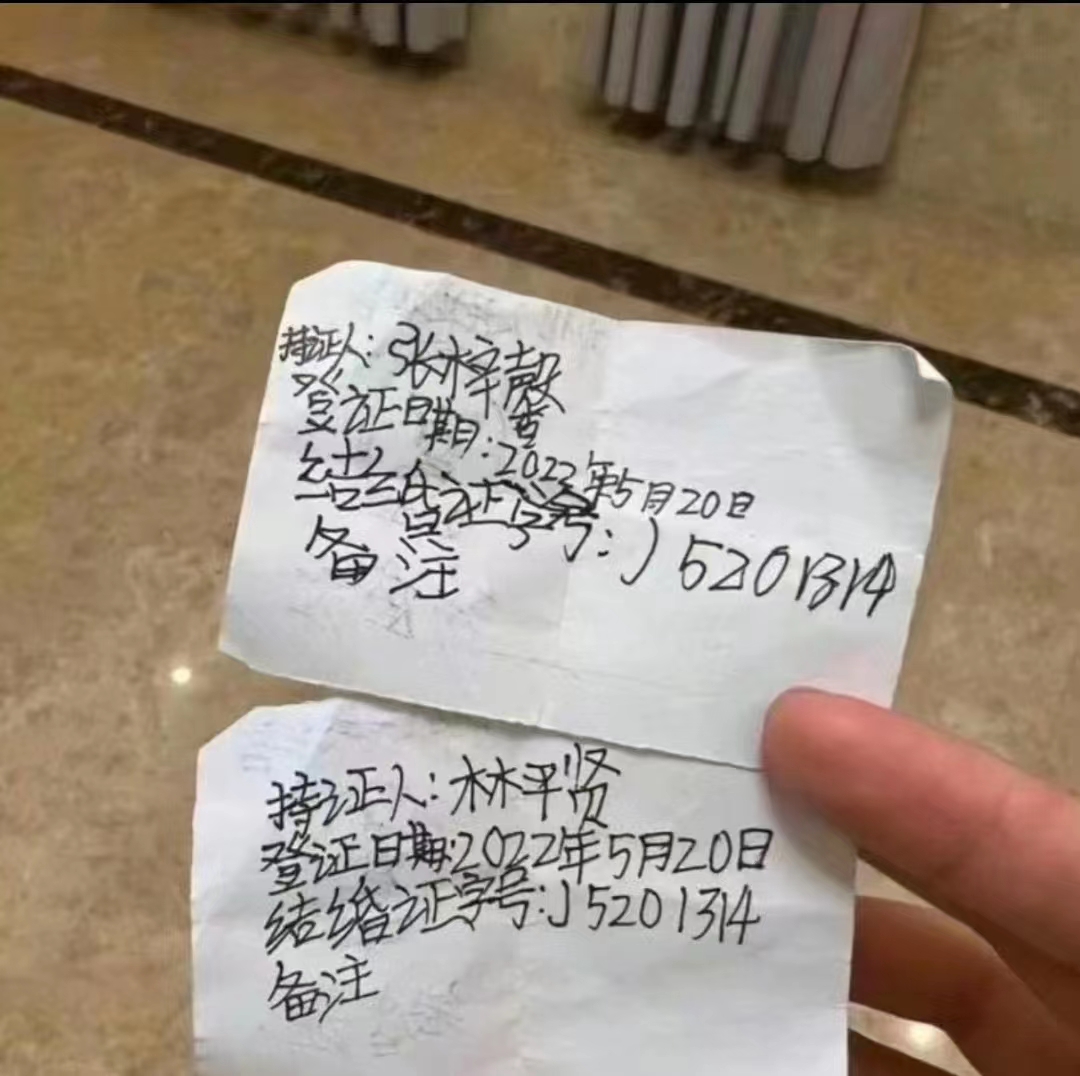 持证人：张梓馨
登证日期：2022年5月20日
结婚证字号：J5201314
备注
持证人：林平贤
登证日期：2022年5月20日
结婚证字号：J5201314
备注